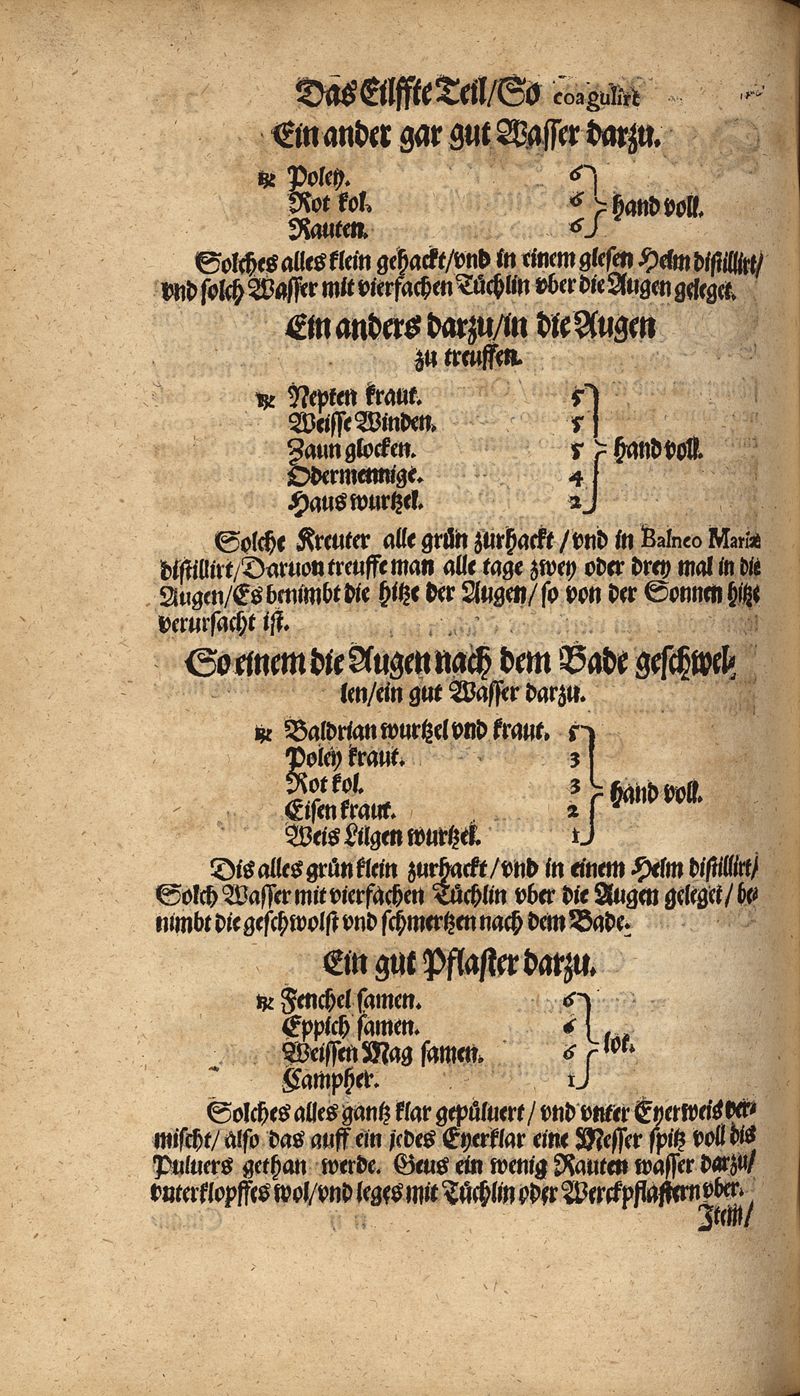 Das Eilffte Teil/ So coagulirt
Ein ander gar gut Wasser darzu.
℞ Poley. 6
Rot kol. 6 hand voll.
Rauten. 6
Solches alles klein gehackt/ vnd in einem glesen Helm distillirt/
vnd solch Wasser mit vierfachen Tüchlin vber die Augen geleget.
Ein anders darzu/ in die Augen
zu treuffen.
℞ Nepten kraut. 5
Weisse Winden. 5
Zaun glocken. 5 hand voll.
Odermennige. 4
Haus wurtzel. 2
Solche Kreuter alle grün zurhackt/ vnd in Balneo Mariæ
distillirt/ Daruon treuffe man alle tage zwey oder drey mal in die
Augen/ Es benimbt die hitze der Augen/ so von der Sonnen hitze
verursacht ist.
So einem die Augen nach dem Bade geschwel-
len/ ein gut Wasser darzu.
℞ Baldrian wurtzel vnd kraut. 5
Poley kraut. 3
Rot kol. 3 hand voll.
Eisen kraut. 2
Weis Lilgen wurtzel. 1
Dis alles grün klein zurhackt/ vnd in einem Helm distillirt/
Solch Wasser mit vierfachen Tüchlin vber die Augen geleget/ be-
nimbt die geschwolst vnd schmertzen nach dem Bade.
Ein gut Pflaster darzu.
℞ Fenchel samen. 6
Eppich samen. 6
Weissen Mag samen. 6 lot.
Campher. 1
Solches alles gantz klar gepüluert/ vnd vnter Eyerweis ver-
mischt/ also das auff ein jedes Eyerklar eine Messer spitz voll dis
Puluers gethan werde. Geus ein wenig Rauten wasser darzu/
vnterklopffes wol/ vnd leges mit Tüchlin oder Werckpflastern vber.
Item/